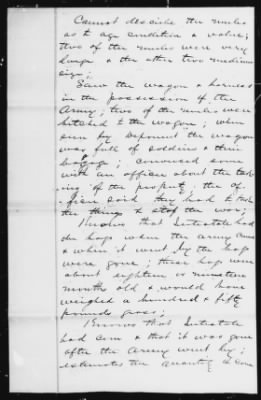 Cannot describe the mules
as to age condition & value;
two of the mules were very
large & the other two medium
size;
Saw the wagon & harness
in the possession of the
Army; two of the mules were
hitched to the wagon; when
seen by deponent the wagon
was full of soldiers & their
baggage; conversed some
with an officer about the tak
ing of the property; the of-
ficer said they had to take
the things & stop the war;
Knows that Intestate had
the hogs when the army came
& when it went by the hogs
were gone; these hogs were
about eighteen or nineteen
months old & would have
weighed a hundred & fifty
pounds gross;
Knows that Intestate
had corn & that it was gone
after the Army went by;
estimates the quantity of corn